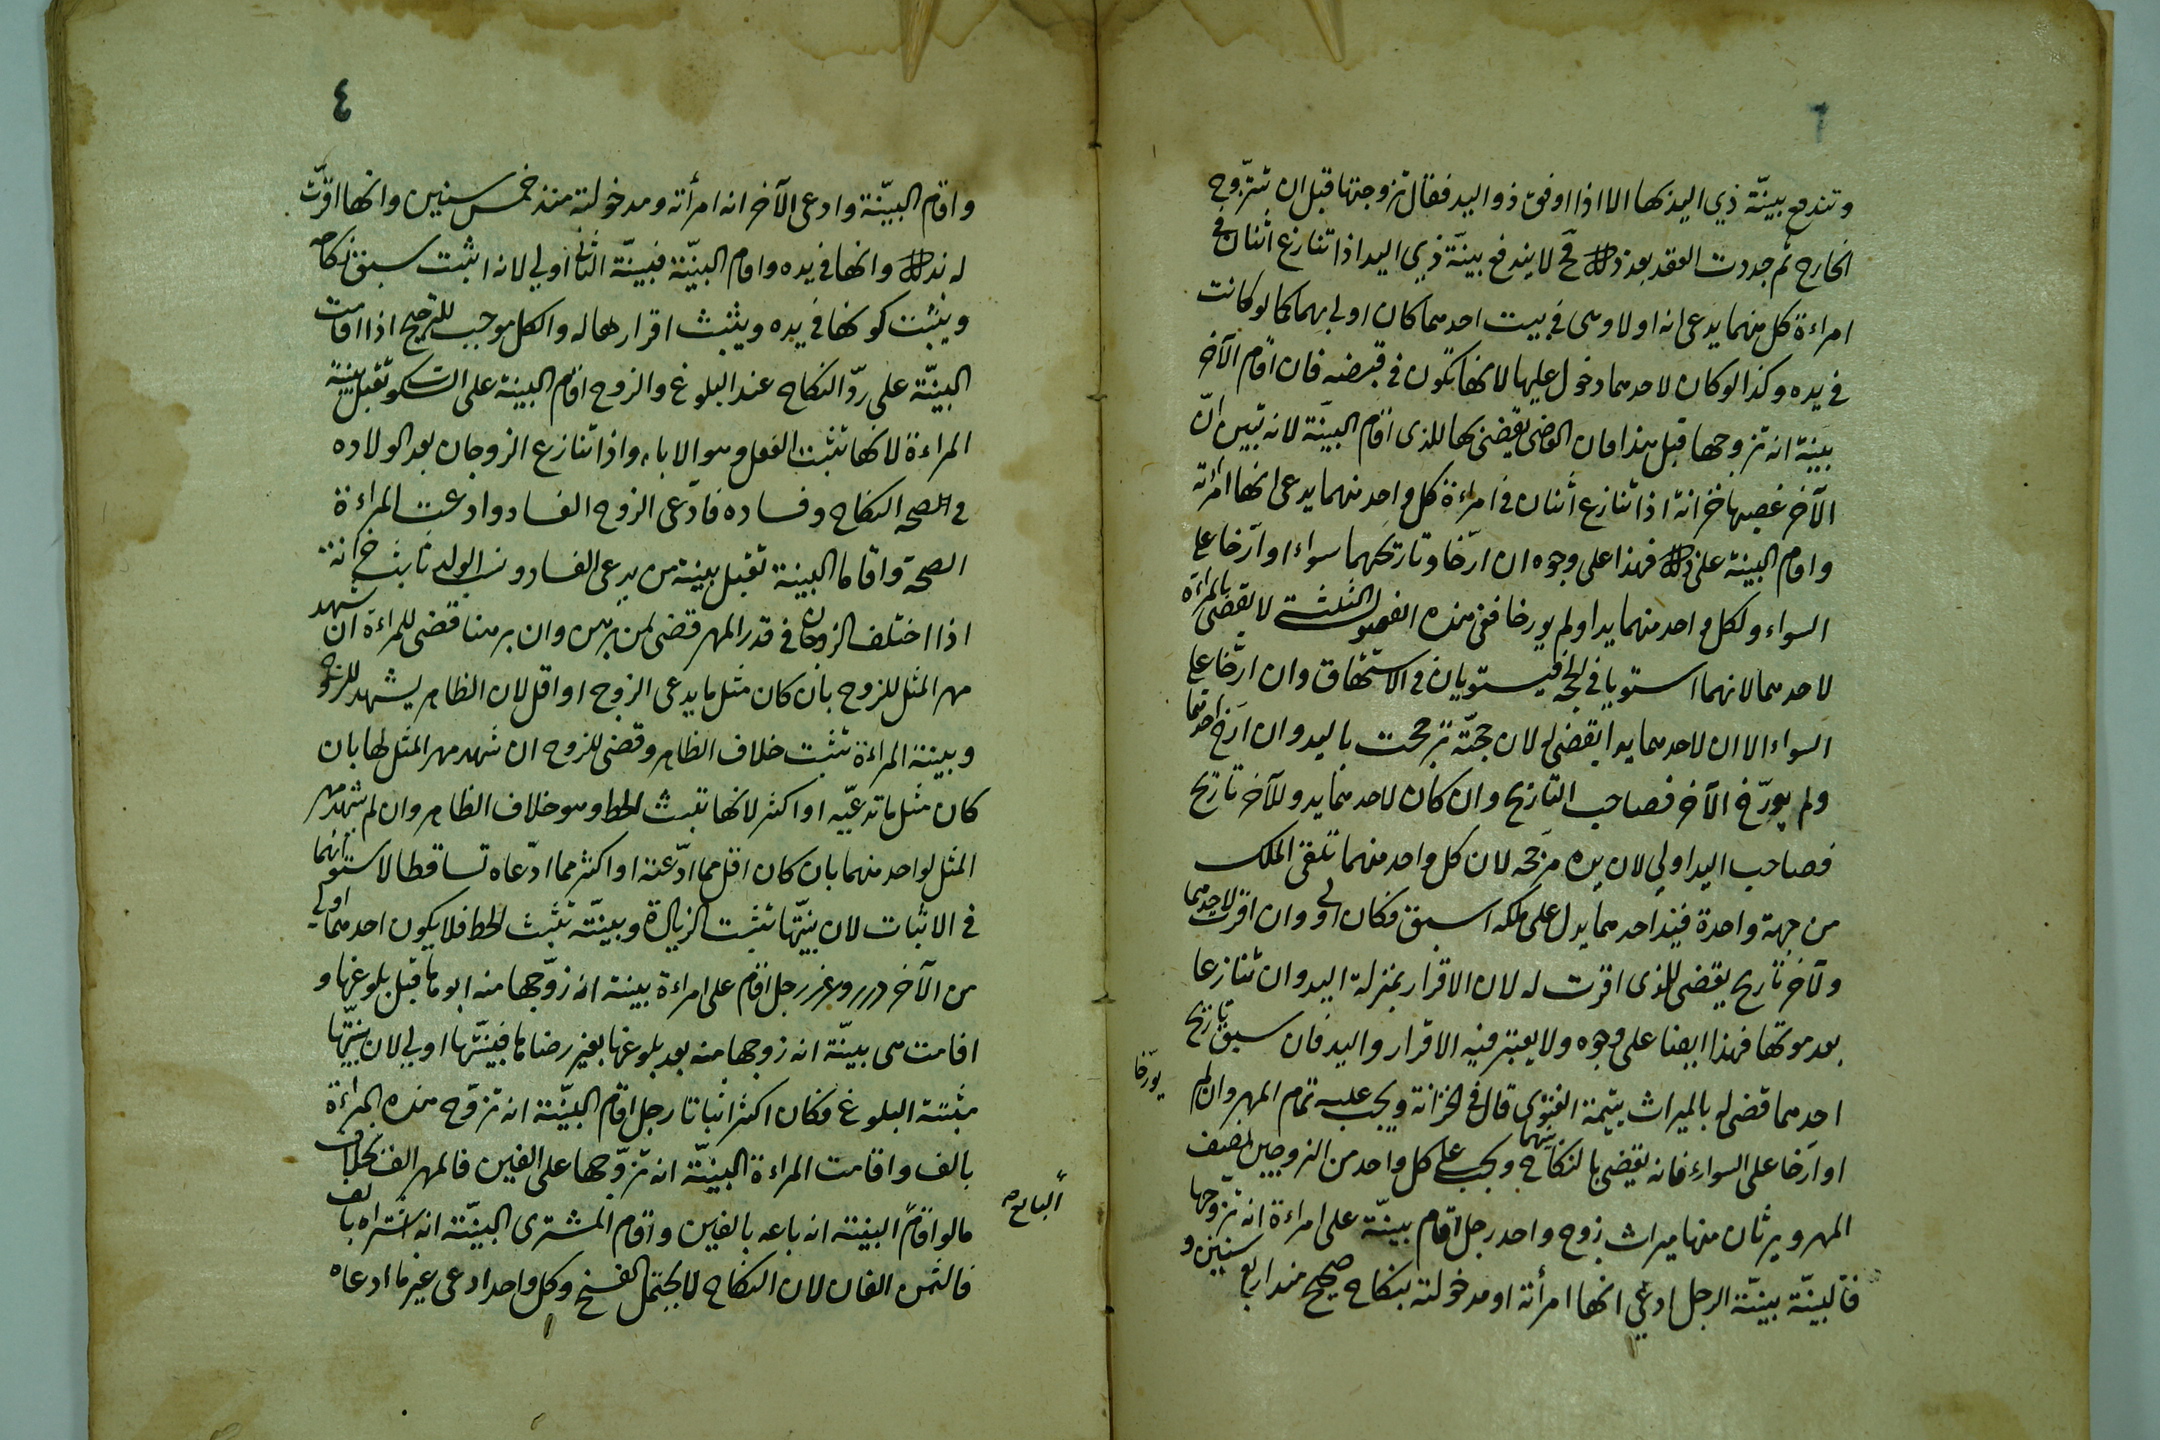 ٦
وتندفع ببينة ذي اليد كها الا اذا اوفق ذو اليد فقال تزوجتها قبل ان تتزوج
الخارج ثم جددت العقد بعد ذلك فح لا يندفع ببينة ذي اليد اذا تنازع اثنان في
امراءة كل منهما يدعى انه اولا وهى في بيت احدهما كان اولى بها كما لو كانت
في يده وكذا لو كان لاحدهما دخول عليها لانها تكون في قبضه فان اقام الآخر
بينة انه تزوجها قبل هذا فان القاضى يقضى بها للذى اقام البينة لانه تبين ان
الآخر غصبها خزانة اذا تنازع اثنان في امراءة كل واحد منهما يدعى انها امرأته
واقام البينة على ذلك فهذا على وجوه ان ارخا وتاريخهما سواء او ارخا على
السواء ولكل واحد منهما يد او لم يورخا ففى هذه الفصول الثلثة لا يقضى بالمراءة
لاحدهما لانهما استويا في الحجة فيستويان في الاستحقاق وان ارخا على
السواء الا ان لاحدهما يدا يقضى له لان حجته ترجحت باليد وان ارخ احدهما
ولم يورخ الآخر فصاحب التاريخ وان كان لاحدهما يد وللآخر تاريخ
فصاحب اليد اولى لان يده مرجحة لان كل واحد منهما تلقى الملك
من جهة واحدة فيد احدهما يدل على ملكه اسبق فكان اولى وان اقرت لاحدهما
ولآخر تاريخ يقضى للذى اقرت له لان الاقرار بمنزلة اليد وان تنازعا
بعد موتها فهذا ايضا على وجوه ولا يعتبر فيه الاقرار واليد فان سبق تاريخ
احدهما قضى له بالميراث يتيمة الفتوى قال في الخزانة ويجب عليه تمام المهر وان لم
يورخا
او ارخا على السواء فانه يقضى بالنكاح بينهما ويجب على كل واحد من الزوجين نصف
المهر ويرثان منها ميراث زوج واحد رجل اقام بينة على امراءة انه تزوجها
فالبينة بينة الرجل ادعى انها امرأته او مدخولته بنكاح صحيح منذ اربع سنين و
٤
واقام البينة وادعى الآخر انه امرأته ومدخولته منذ خمس سنين وانها اقرت
له بذلك وانها في يده واقام البينة فبينة الثانى اولى لانه اثبت سبق نكاحه
ويثبت كونها في يده ويثبت اقرارها له والكل موجب للترجيح اذا اقامت
البينة على رد النكاح عند البلوغ والزوج اقام البينة على السكوت تقبل بينة
المراءة لانها تثبت الفعل وهو الاباء واذا تنازع الزوجان بعد الولادة
في الصحة النكاح وفساده فادعى الزوج الفساد وادعت المراءة
الصحة واقاما البينة تقبل بينة من يدعى الفساد ونسب الولد ثابت خزانة
اذا اختلف الزوجان في قدر المهر قضى لمن برهن وان برهنا قضى للمراءة ان شهد
مهر المثل للزوج بأن كان مثل ما يدعى الزوج او اقل لان الظاهر يشهد للزوج
وبينة المراءة تثبت خلاف الظاهر وقضى للزوج ان شهد مهر المثل لها بان
كان مثل ما تدعيه او اكثر لانها تثبت الحط وهو خلاف الظاهر وان لم يشهد مهر
المثل لواحد منهما بان كان اقل مما ادعته او اكثر مما ادعاه تساقطا لاستوائهما
في الاثبات لان بينتها تثبت الزيادة وبينته تثبت الحط فلا يكون احدهما اولى
من الآخر درر وغرر رجل اقام على امراءة بينة انه زوجها منه ابوها قبل بلوغها و
اقامت هى بينة انه زوجها منه بعد بلوغها بغير رضاها فبينتها اولى لان بينتها
مثبتة البلوغ فكان اكثر اثباتا رجل اقام البينة انه تزوج هذه المراءة
بالف واقامت المراءة البينة انه تزوجها على الفين فالمهر الف بخلاف
البائع صح
ما لو اقام البينة انه باعه بالفين واقام المشترى البينة انه اشتراه بالف
فالثمن الفان لان النكاح لا يحتمل الفسخ وكل واحد ادعى غير ما ادعاه